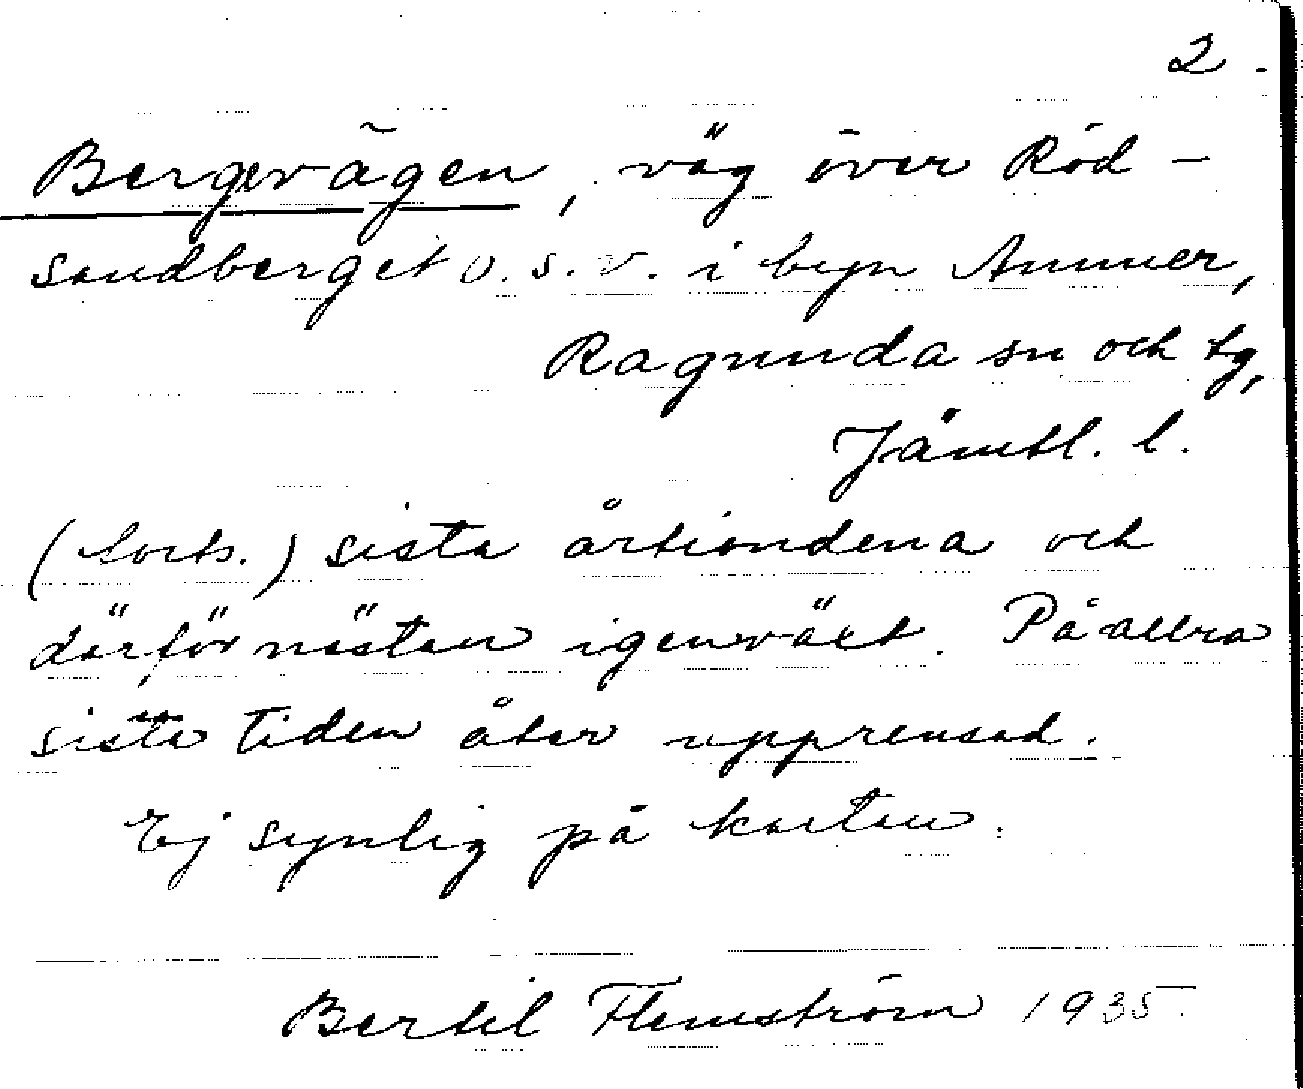 2.
Bergevägen, väg över Röd-
sandberget o.s.v. i byn Ammer,
Ragunda sn och tg,
Jämtl. l.
(forts.) sista årtiondena och
därför nästan igenväxt. På allra
sista tiden åter upprensad.
Ej synlig på kartan.
Bertil Flemström 1935.